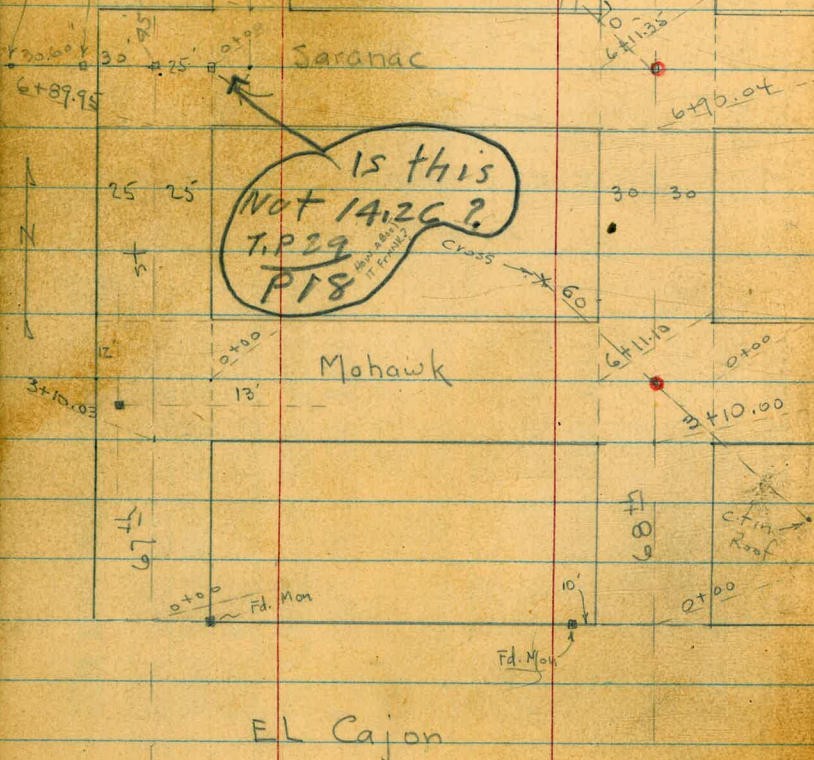 45
10'
30.60'
30'
25'
0+00
Saranac
6+11.35
6+89.95
6+90.04
Is this
Not 14.26 ?
T.P 29
P18
How about
it Frank?
25 25'
30 30
N
st
Cross
60
12'
0+00
Mohawk
6+11.10
0+00
3+10.03
13'
3+10.00
67th
68th
Ctin
Roof
0+00
Fd. Mon
10'
0+00
Fd. Mon
EL Cajon